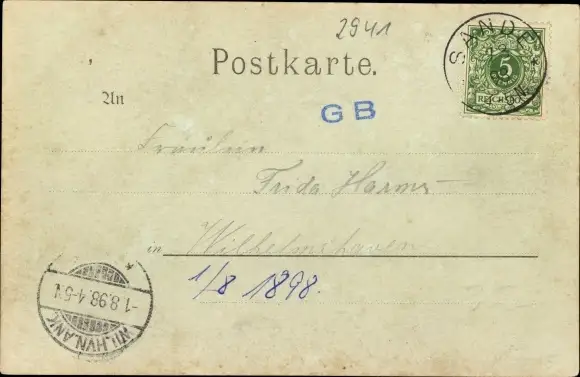 2941
SANDE
5
REICHSPOST
Postkarte.
An
GB
Fräulein
Frida Harms
in Wilhelmshaven
1/8 1898.
-1.8.98.4-5N.
WILHVN.ANK.